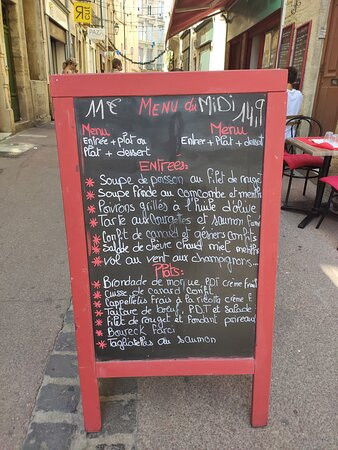 11€ MENU du MiDi 14,9
Menu Menu
Entrée + Plat ou Entrer + Plat + dessert
Plat + dessert
Entrees:
* Soupe de poisson au filet de rouge
* Soupe froide au concombre et menthe
* Poivrons grillés à l'huile d'olive
* Tarte aux courgettes et saumon fumé
* Confit de canard et gésiers confits
* Salade de chèvre chaud miel
* Vol au vent aux champignons...
Plats:
* Brandade de morue, PDT crème
* Cuisse de canard confit
* Cappelletis frais à la ricotta crème
* Tartare de bœuf, P.D.T et Salade
* Filet de rouget et fondant poireau
* Boureck Farci
* Tagliatelles au saumon